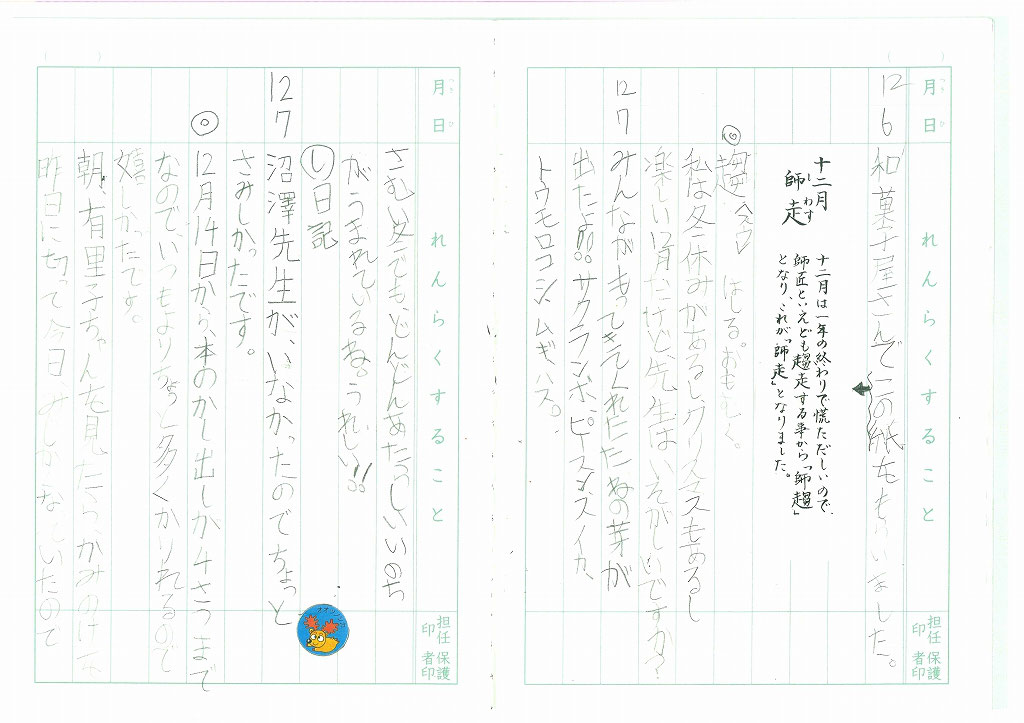 月日
れんらくすること
担任印
保護者印
12 6
和菓子屋さんでこの紙をもらいました。
十二月
師走
しわす
十二月は一年の終わりで慌ただしいので、
師匠といえども趨走する事から「師趨」
となり、これが「師走」となりました。
◎趨 はしる。おもむく。
私は冬休みがあるし、クリスマスもあるし
楽しい12月だけど、先生はいそがしいですか?
12 7
みんながもってきてくれたたねの芽が
出たよ!!サクランボ、ピーマン、スイカ、
トウモロコシ、ムギ、ハス。
月日
れんらくすること
担任印
保護者印
さむい冬でも、どんどんあたらしいいのち
がうまれているね。うれしい!!
し日記
12 7
沼澤先生が、いなかったのでちょっと
さみしかったです。
◎
12月14日から、本のかし出しが4さつまで
なので、いつもよりちょっと多くかりれるので
嬉しかったです。
朝、有里子ちゃんを見たらかみのけを
昨日に切って今日、みじかくなっていたので